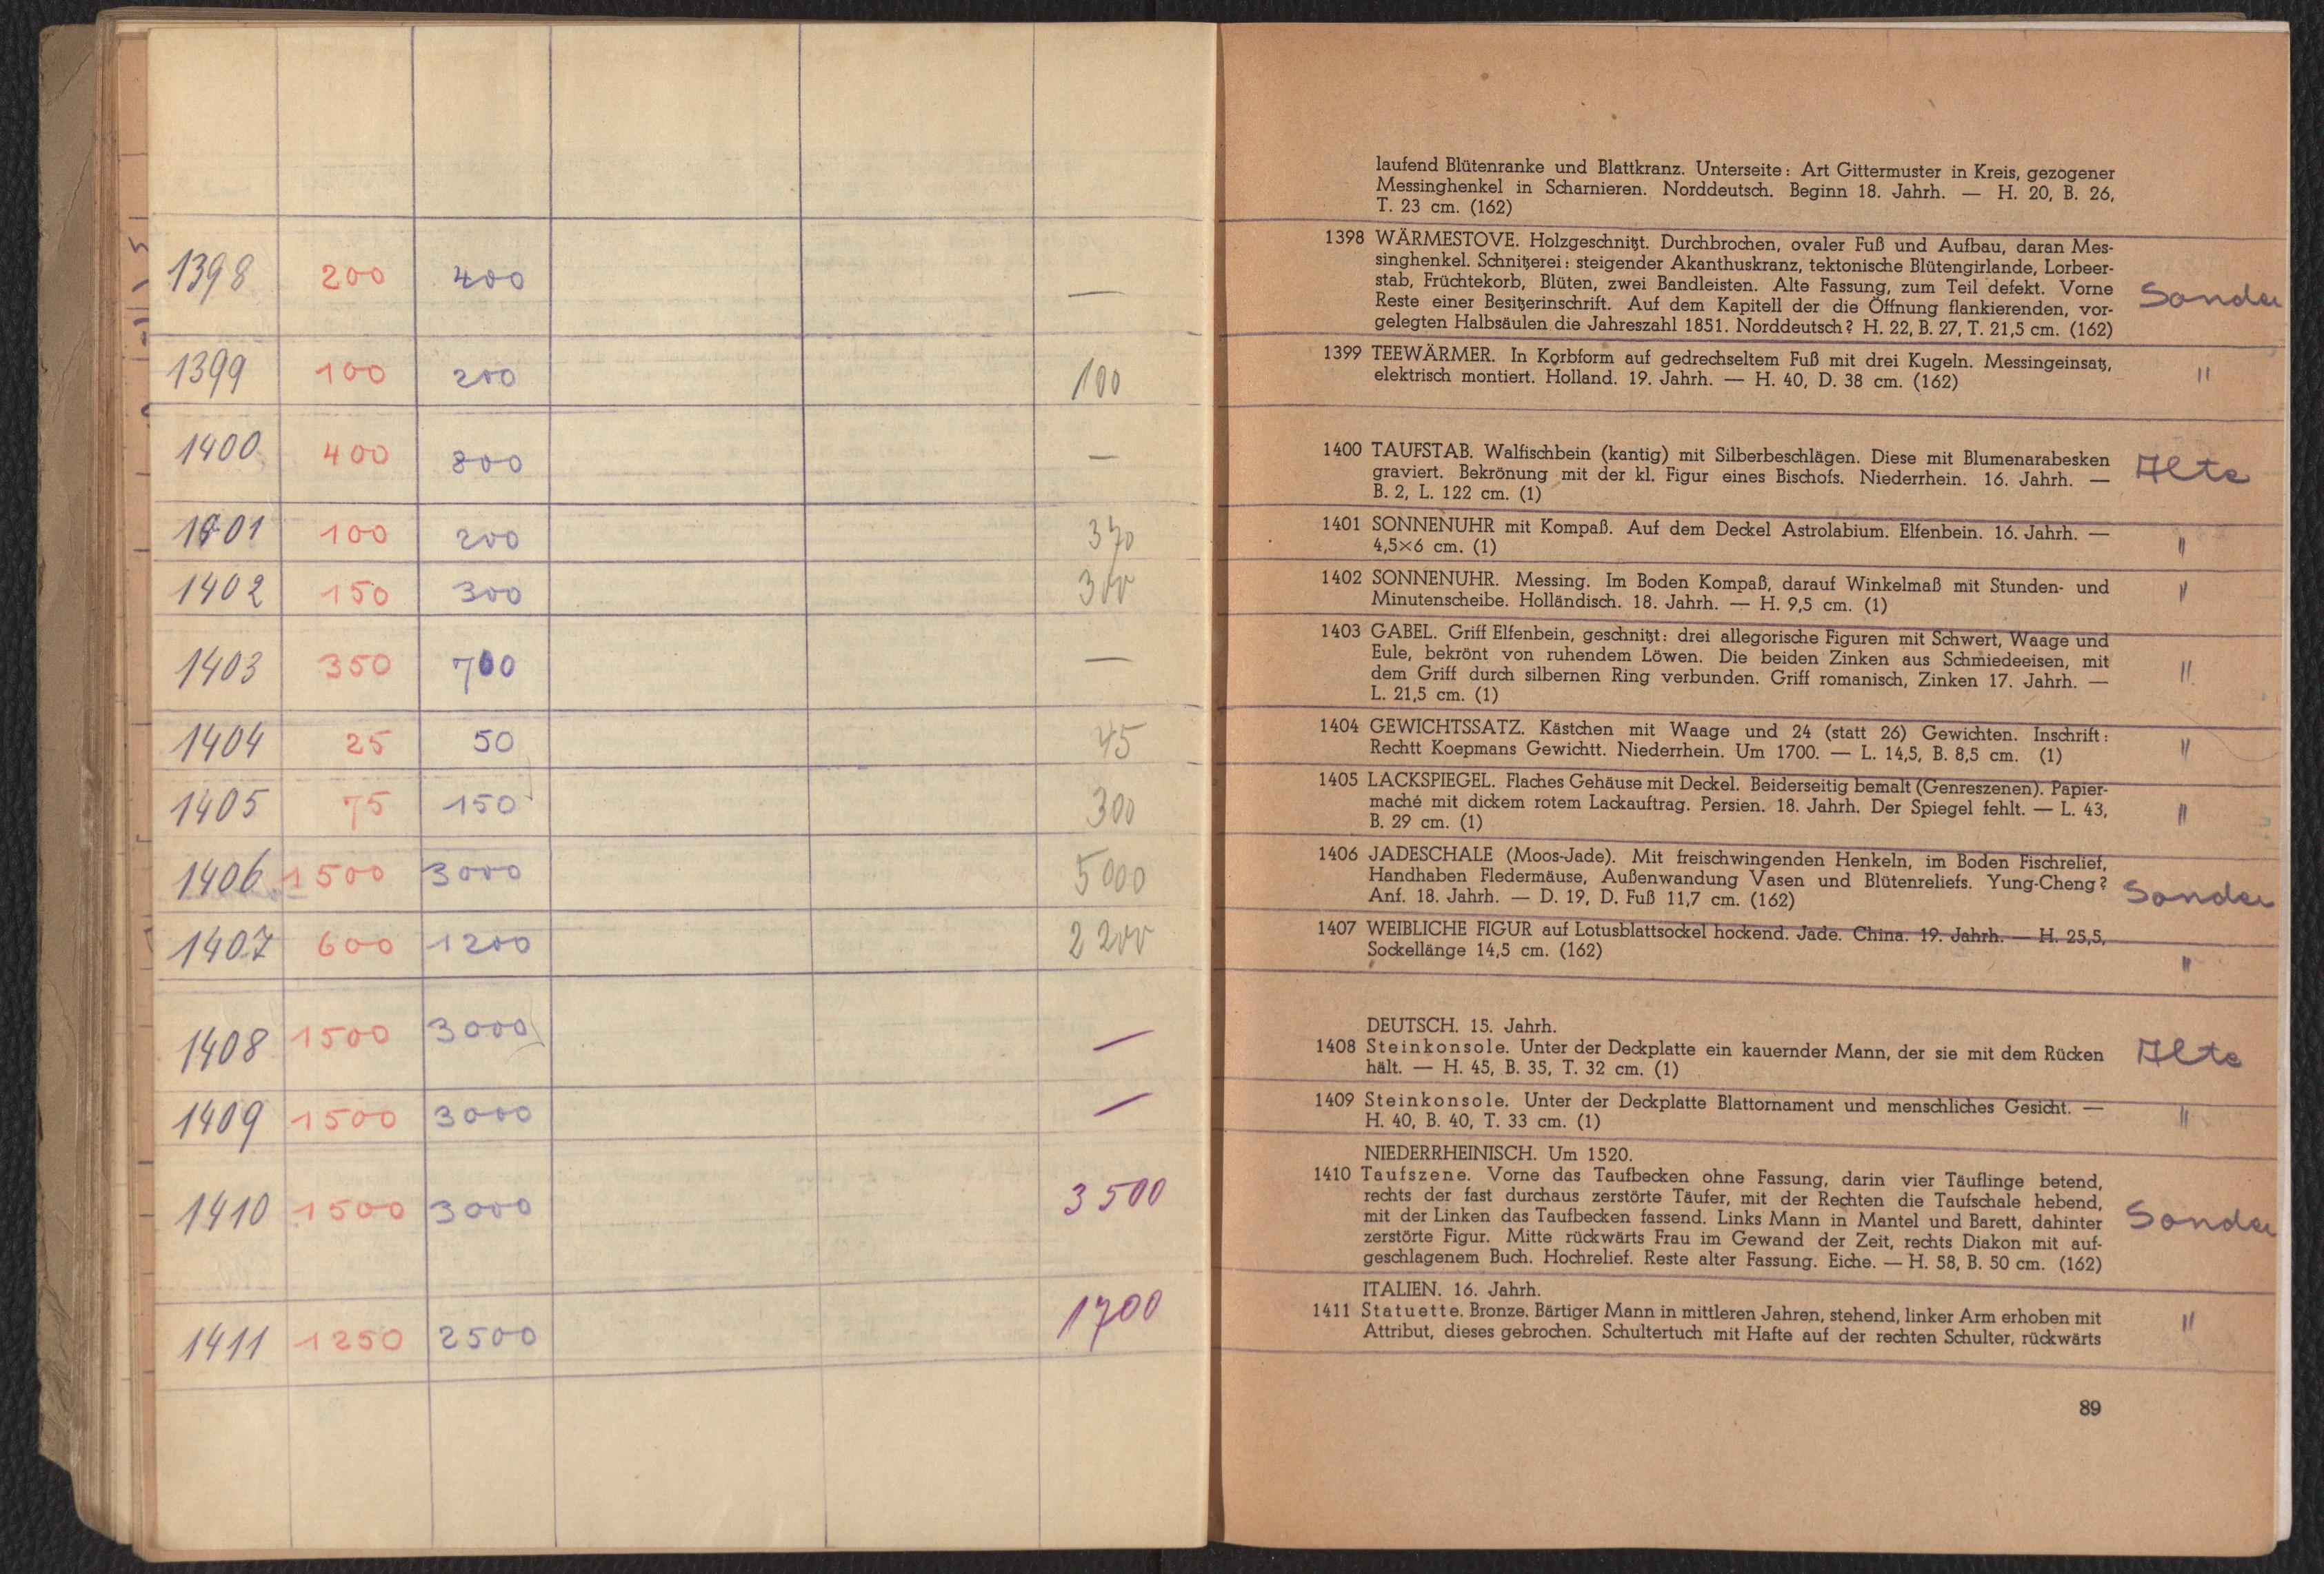 1398 200 400 —
1399 100 200 100
1400 400 800 —
1401 100 200 370
1402 150 300 300
1403 350 700 —
1404 25 50 45
1405 75 150 300
1406 1500 3000 5000
1407 600 1200 2200
1408 1500 3000 —
1409 1500 3000 —
1410 1500 3000 3500
1411 1250 2500 1700
laufend Blütenranke und Blattkranz. Unterseite: Art Gittermuster in Kreis, gezogener
Messinghenkel in Scharnieren. Norddeutsch. Beginn 18. Jahrh. — H. 20, B. 26,
T. 23 cm. (162)
1398 WÄRMESTOVE. Holzgeschnitzt. Durchbrochen, ovaler Fuß und Aufbau, daran Mes-
singhenkel. Schnitzerei: steigender Akanthuskranz, tektonische Blütengirlande, Lorbeer-
stab, Früchtekorb, Blüten, zwei Bandleisten. Alte Fassung, zum Teil defekt. Vorne
Reste einer Besitzerinschrift. Auf dem Kapitell der die Öffnung flankierenden, vor-
gelegten Halbsäulen die Jahreszahl 1851. Norddeutsch? H. 22, B. 27, T. 21,5 cm. (162)
Sonder
1399 TEEWÄRMER. In Korbform auf gedrechseltem Fuß mit drei Kugeln. Messingeinsatz,
elektrisch montiert. Holland. 19. Jahrh. — H. 40, D. 38 cm. (162)
"
1400 TAUFSTAB. Walfischbein (kantig) mit Silberbeschlägen. Diese mit Blumenarabesken
graviert. Bekrönung mit der kl. Figur eines Bischofs. Niederrhein. 16. Jahrh. —
B. 2, L. 122 cm. (1)
Alte
1401 SONNENUHR mit Kompaß. Auf dem Deckel Astrolabium. Elfenbein. 16. Jahrh. —
4,5×6 cm. (1)
"
1402 SONNENUHR. Messing. Im Boden Kompaß, darauf Winkelmaß mit Stunden- und
Minutenscheibe. Holländisch. 18. Jahrh. — H. 9,5 cm. (1)
"
1403 GABEL. Griff Elfenbein, geschnitzt: drei allegorische Figuren mit Schwert, Waage und
Eule, bekrönt von ruhendem Löwen. Die beiden Zinken aus Schmiedeeisen, mit
dem Griff durch silbernen Ring verbunden. Griff romanisch, Zinken 17. Jahrh. —
L. 21,5 cm. (1)
"
1404 GEWICHTSSATZ. Kästchen mit Waage und 24 (statt 26) Gewichten. Inschrift:
Rechtt Koepmans Gewichtt. Niederrhein. Um 1700. — L. 14,5, B. 8,5 cm. (1)
"
1405 LACKSPIEGEL. Flaches Gehäuse mit Deckel. Beiderseitig bemalt (Genreszenen). Papier-
maché mit dickem rotem Lackauftrag. Persien. 18. Jahrh. Der Spiegel fehlt. — L. 43,
B. 29 cm. (1)
"
1406 JADESCHALE (Moos-Jade). Mit freischwingenden Henkeln, im Boden Fischrelief,
Handhaben Fledermäuse, Außenwandung Vasen und Blütenreliefs. Yung-Cheng?
Anf. 18. Jahrh. — D. 19, D. Fuß 11,7 cm. (162)
Sonder
1407 WEIBLICHE FIGUR auf Lotusblattsockel hockend. Jade. China. 19. Jahrh. — H. 25,5,
Sockellänge 14,5 cm. (162)
"
DEUTSCH. 15. Jahrh.
1408 Steinkonsole. Unter der Deckplatte ein kauernder Mann, der sie mit dem Rücken
hält. — H. 45, B. 35, T. 32 cm. (1)
Alte
1409 Steinkonsole. Unter der Deckplatte Blattornament und menschliches Gesicht. —
H. 40, B. 40, T. 33 cm. (1)
"
NIEDERRHEINISCH. Um 1520.
1410 Taufszene. Vorne das Taufbecken ohne Fassung, darin vier Täuflinge betend,
rechts der fast durchaus zerstörte Täufer, mit der Rechten die Taufschale hebend,
mit der Linken das Taufbecken fassend. Links Mann in Mantel und Barett, dahinter
zerstörte Figur. Mitte rückwärts Frau im Gewand der Zeit, rechts Diakon mit auf-
geschlagenem Buch. Hochrelief. Reste alter Fassung. Eiche. — H. 58, B. 50 cm. (162)
Sonder
ITALIEN. 16. Jahrh.
1411 Statuette. Bronze. Bärtiger Mann in mittleren Jahren, stehend, linker Arm erhoben mit
Attribut, dieses gebrochen. Schultertuch mit Hafte auf der rechten Schulter, rückwärts
"
89